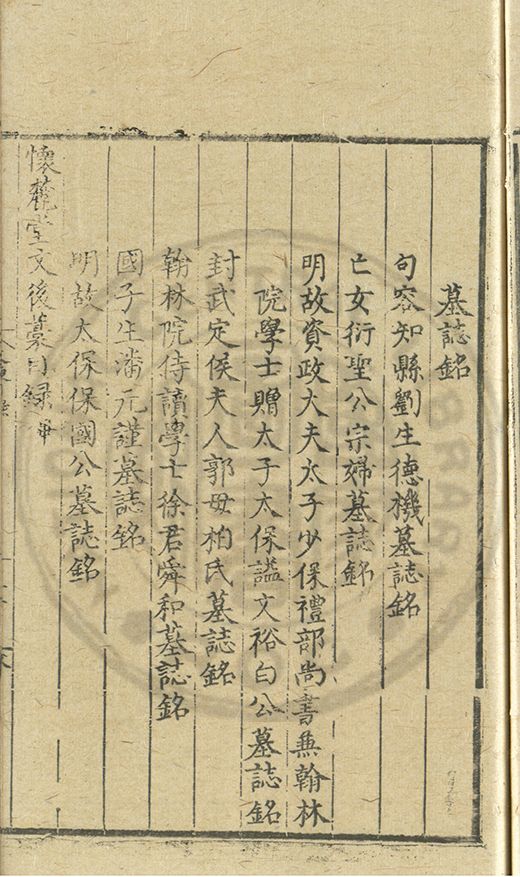 墓誌銘
句容知縣劉生德機墓誌銘
亡女衍聖公宗婦墓誌銘
明故資政大夫太子少保禮部尚書兼翰林
院學士贈太子太保謚文裕白公墓誌銘
封武定侯夫人郭母柏氏墓誌銘
翰林院侍讀學士徐君舜和墓誌銘
國子生潘元謹墓誌銘
明故太保保國公墓誌銘
懷麓堂文後藁目録